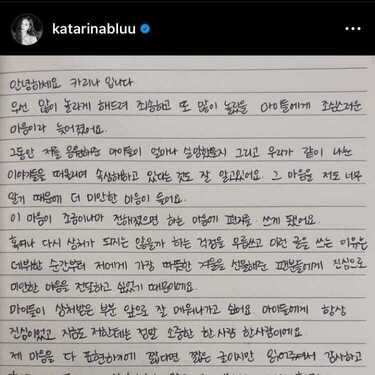 katarinabluu
안녕하세요 카리나 입니다
우선 많이 놀라게 해드려 죄송하고 또 많이 놀랐을 마이들에게 조심스러운
마음이라 늦어졌어요.
그동안 저를 응원해준 마이들이 얼마나 실망했을지 그리고 우리가 같이 나눈
이야기들을 떠올리며 속상해하고 있다는것도 잘 알고있어요. 그 마음을 저도 너무
알기 때문에 더 미안한 마음이 들어요.
이 마음이 조금이나마 전해졌으면 하는 마음에 편지를 쓰게 됐어요.
혹여나 다시 상처가 되지는 않을까 하는 걱정을 무릅쓰고 이런 글을 쓰는 이유은
데뷔한 순간부터 저에게 가장 따뜻한 겨울을 선물해준 팬분들에게 진심으로
미안한 마음을 전달하고 싶었기 때문이에요.
마이들이 상처받은 부분 앞으로 잘 메워나가고 싶어요 마이들에게 항상
진심이었고 지금도 저한테는 정말 소중한 한사람 한사람이에요
제 마음을 다 표현하기에 짧다면 짧은 글이지만 읽어주셔서 감사하고